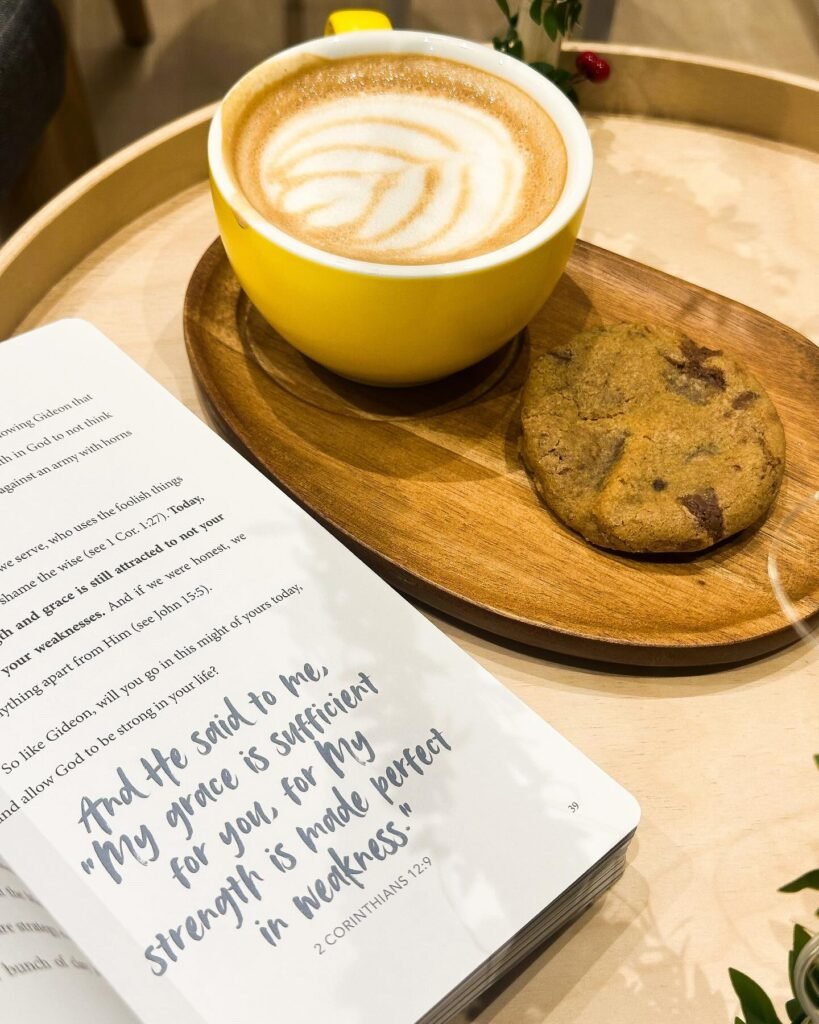 owing Gideon that
th in God to not think
against an army with horns
we serve, who uses the foolish things
shame the wise (see 1 Cor. 1:27). Today,
gth and grace is still attracted to not your
your weaknesses. And if we were honest, we
ything apart from Him (see John 15:5).
So like Gideon, will you go in this might of yours today,
and allow God to be strong in your life?
And He said to me,
"My grace is sufficient
for you, for My
strength is made perfect
in weakness."
2 CORINTHIANS 12:9
39
bunch of